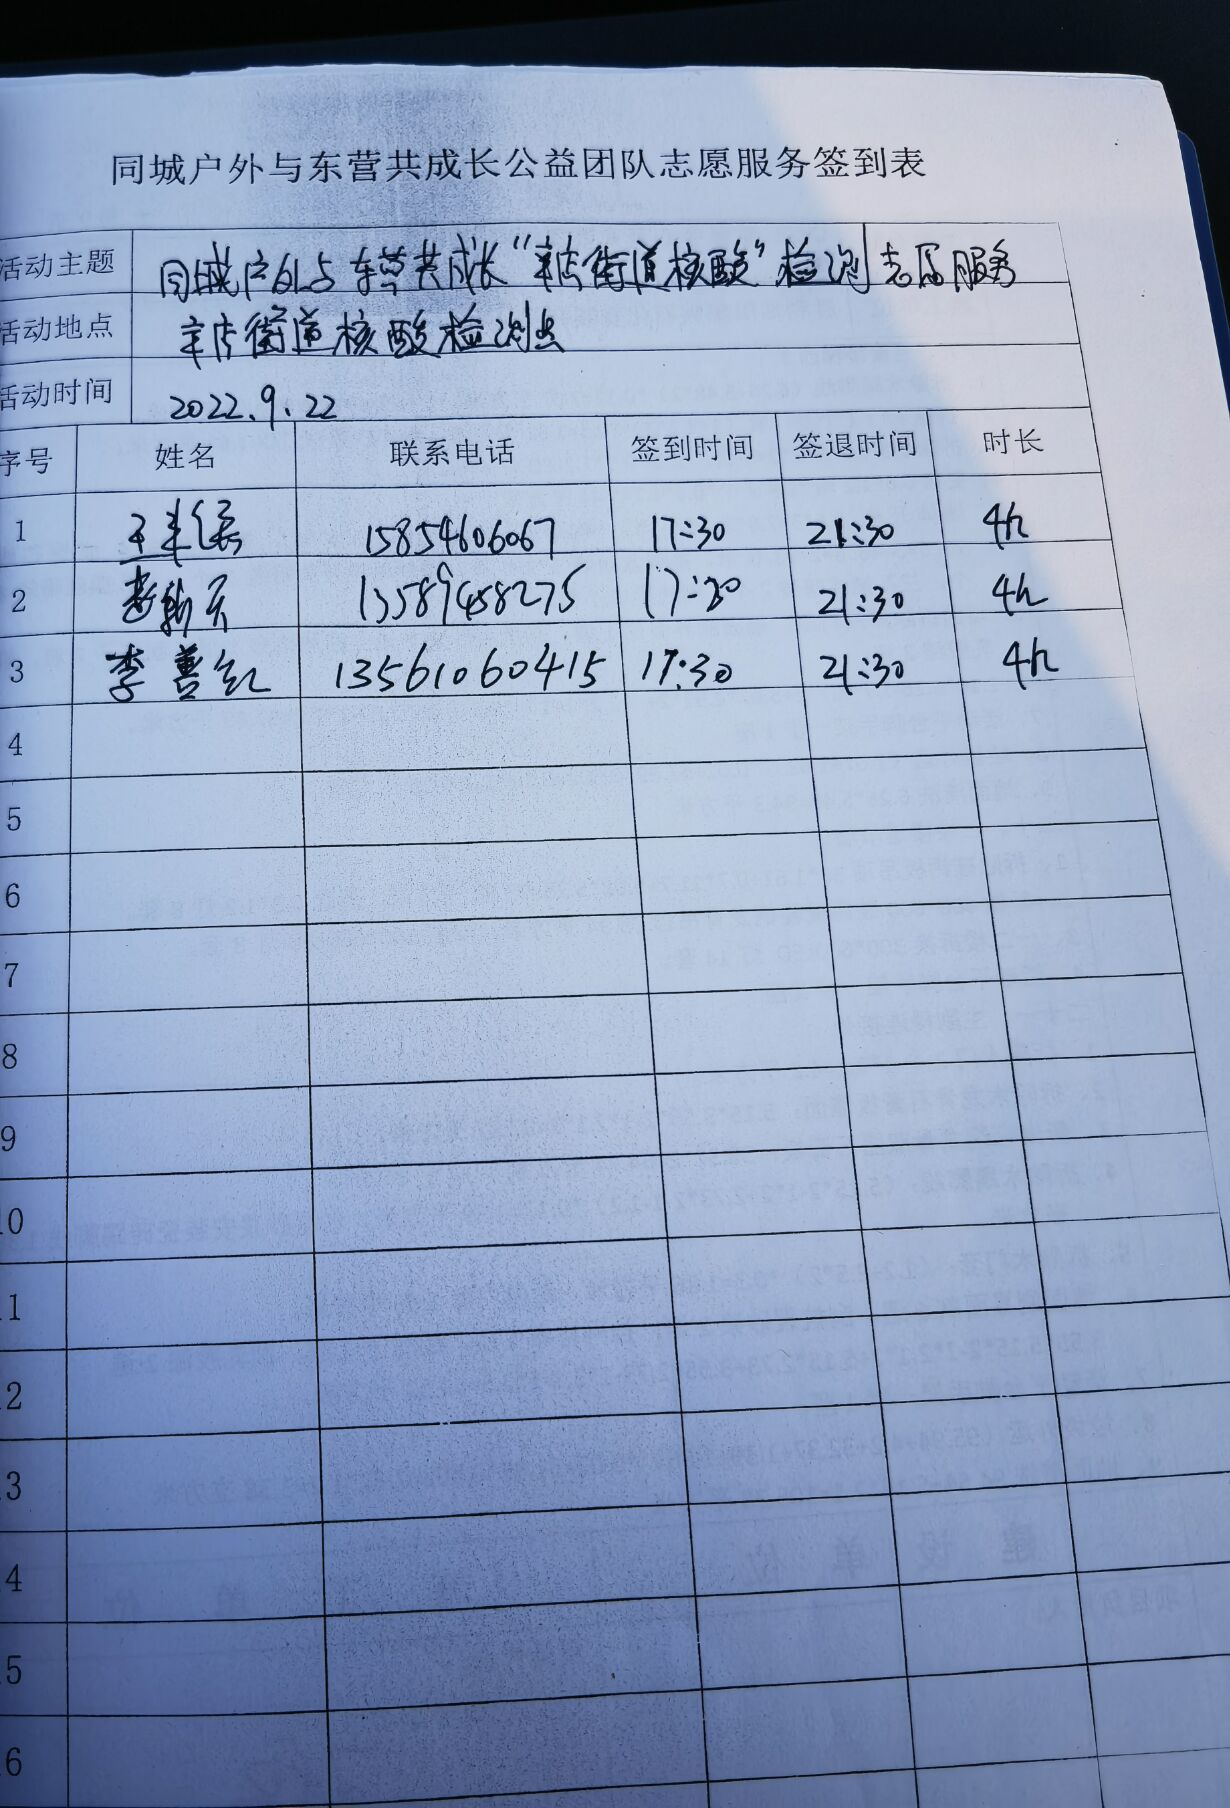 同城户外与东营共成长公益团队志愿服务签到表
活动主题 同城户外与东营共成长“辛店街道核酸”检测志愿服务
活动地点 辛店街道核酸检测点
活动时间 2022.9.22
序号 姓名 联系电话 签到时间 签退时间 时长
1 15854606067 17:30 21:30 4h
2 13589458275 17:30 21:30 4h
3 李善红 13561060415 17:30 21:30 4h
4
5
6
7
8
9
10
11
12
13
14
15
16